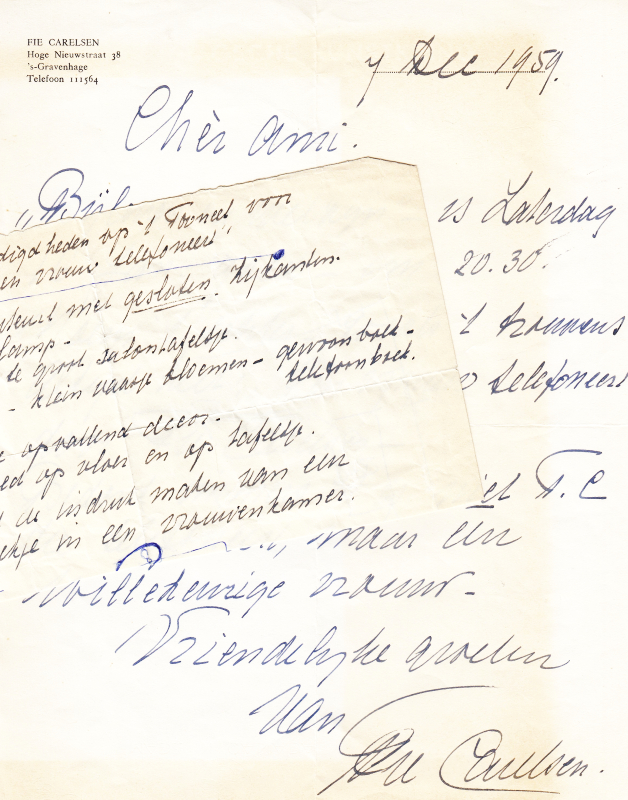 FIE CARELSEN
Hoge Nieuwstraat 38
's-Gravenhage
Telefoon 111564
7 Dec 1959.
Chèr ami.
is Zaterdag
20.30.
't trouwens
telefoneert
T. C
maar een
willekeurige vrouw-
Vriendelyke groeten
van
Fie Carelsen.
digdheden op 't Tooneel voor
en vrouw telefoneert"
met gesloten zijkanten.
lamp-
te groot salontafeltje.
- klein vaasje bloemen - gewoon boek-
telefoonboek.
opvallend decor-
op vloer en op tafeltje.
de indruk maken van een
hoekje in een vrouwenkamer.